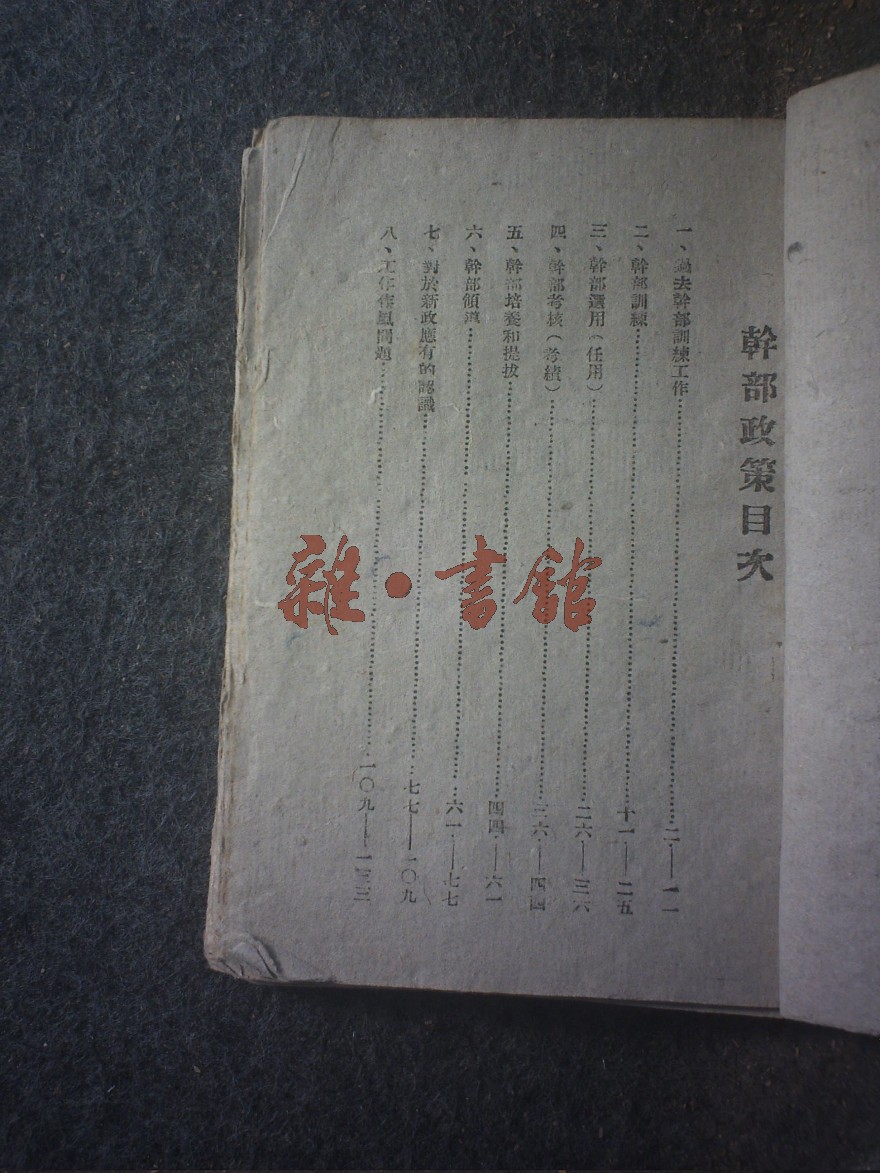 幹部政策目次
一、過去幹部訓練工作……二——一一
二、幹部訓練……十一——二五
三、幹部選用(任用)……二六——三六
四、幹部考核(考績)……三六——四四
五、幹部培養和提拔……四四——六一
六、幹部領導……六一——七七
七、對於新政應有的認識……七七——一〇九
八、工作作風問題……一〇九——一三三
雜·書館